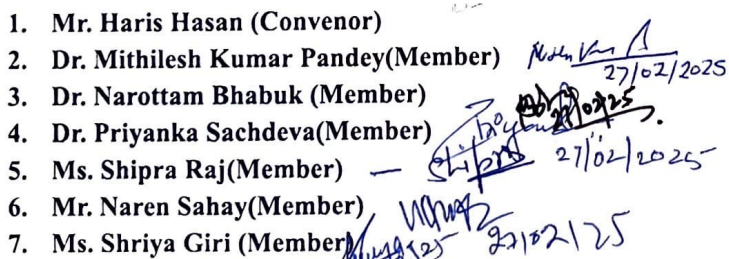 1. Mr. Haris Hasan (Convenor)
2. Dr. Mithilesh Kumar Pandey(Member)
27/02/2025
3. Dr. Narottam Bhabuk (Member)
27/02/25
4. Dr. Priyanka Sachdeva(Member)
5. Ms. Shipra Raj(Member) — Shipra 27/02/2025
6. Mr. Naren Sahay(Member)
7. Ms. Shriya Giri (Member) 27/02/25